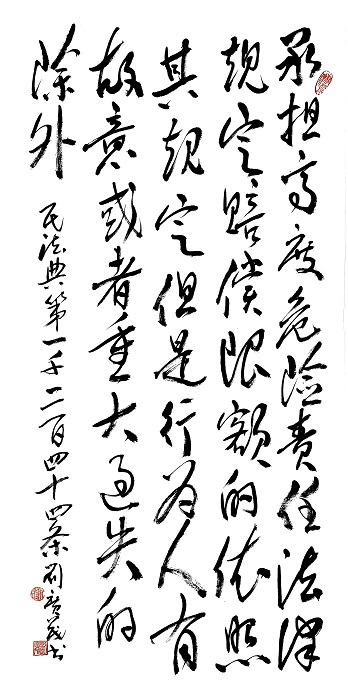 承担高度危险责任法律
规定赔偿限额的依照
其规定但是行为人有
故意或者重大过失的
除外
民法典第一千二百四十四条刘广义书